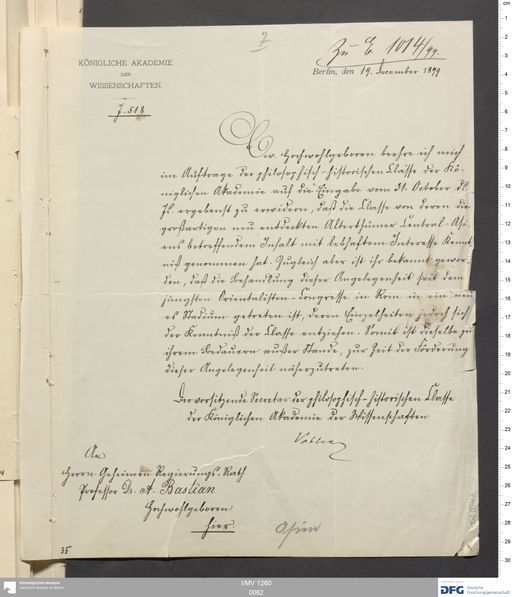 7
Zu E. 1014/99.
KÖNIGLICHE AKADEMIE
DER
WISSENSCHAFTEN.
J. 518
Berlin, den 19. December 1899
Ew. Hochwohlgeboren beehre ich mich
im Auftrage der philosophisch-historischen Classe der Kö-
niglichen Akademie auf die Eingabe vom 31. October d.
Js. ergebenst zu erwidern, daß die Classe von deren die
großartigen neu entdeckten Alterthümer Central-Asi-
ens betreffendem Inhalt mit lebhaftem Interesse Kennt-
niß genommen hat. Zugleich aber ist ihr bekannt gewor-
den, daß die Behandlung dieser Angelegenheit seit dem
jüngsten Orientalisten-Congresse in Rom in ein neu-
es Stadium getreten ist, deren Einzelheiten jedoch sich
der Kenntniß der Classe entziehen. Somit ist dieselbe zu
ihrem Bedauern außer Stande, zur Zeit der Förderung
dieser Angelegenheit näherzutreten.
Der vorsitzende Secretar der philosophisch-historischen Classe
der Königlichen Akademie der Wissenschaften
Vahlen
An
Herrn Geheimen Regierungs-Rath
Professor Dr. A. Bastian
Hochwohlgeboren
hier.
Asien
35
Ethnologisches Museum
Staatliche Museen zu Berlin
I/MV 1260
0062
DFG Deutsche
Forschungsgemeinschaft